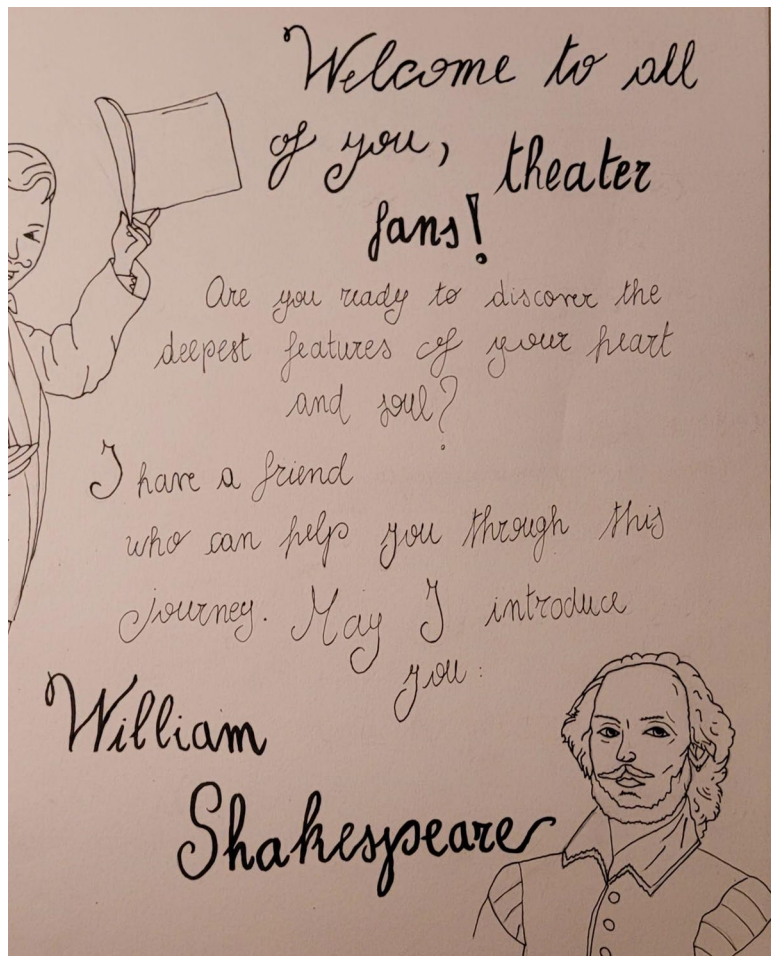 Welcome to all
of you, theater
fans!
Are you ready to discover the
deepest features of your heart
and soul?
I have a friend
who can help you through this
journey. May I introduce
you:
William
Shakespeare